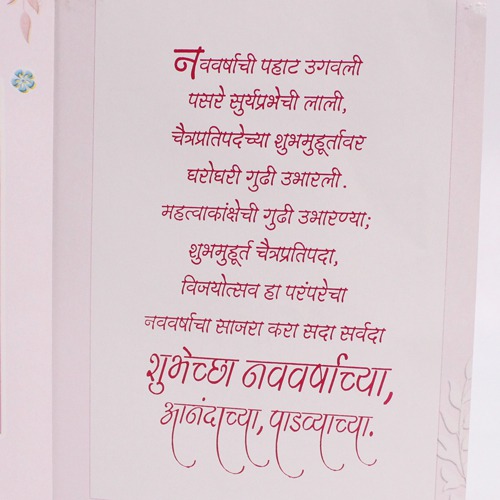 नववर्षाची पहाट उगवली
पसरे सुर्यप्रभेची लाली,
चैत्रप्रतिपदेच्या शुभमुहूर्तावर
घरोघरी गुढी उभारली.
महत्वाकांक्षेची गुढी उभारण्या;
शुभमुहूर्त चैत्रप्रतिपदा,
विजयोत्सव हा परंपरेचा
नववर्षाचा साजरा करा सदा सर्वदा
शुभेच्छा नववर्षाच्या,
आनंदाच्या, पाडव्याच्या.